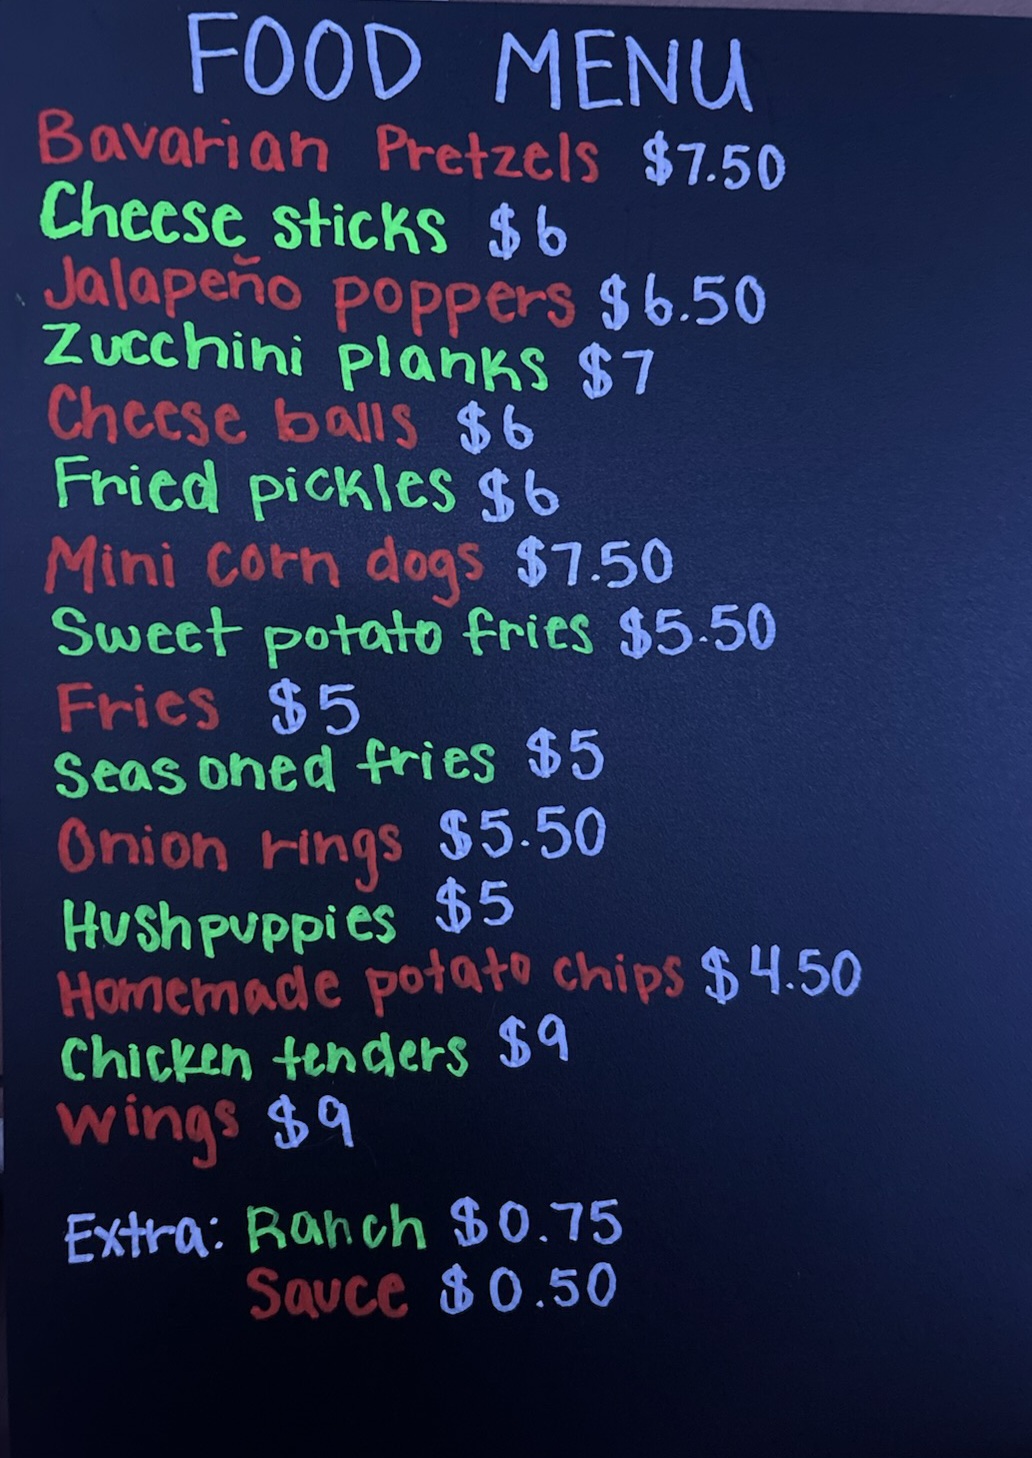 FOOD MENU
Bavarian Pretzels $7.50
Cheese sticks $6
Jalapeño poppers $6.50
Zucchini planks $7
Cheese balls $6
Fried pickles $6
Mini corn dogs $7.50
Sweet potato fries $5.50
Fries $5
Seasoned fries $5
Onion rings $5.50
Hushpuppies $5
Homemade potato chips $4.50
Chicken tenders $9
Wings $9
Extra: Ranch $0.75
Sauce $0.50